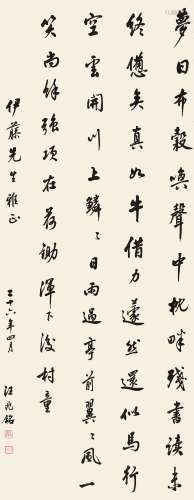 夢回布穀喚聲中枕畔殘書讀未
終憊矣真如牛借力蘧然還似馬行
空雲開川上鱗〻日雨過亭前翼〻風一
笑尚餘強項在荷鋤渾不後村童
伊藤先生雅正
二十六年四月
汪兆銘